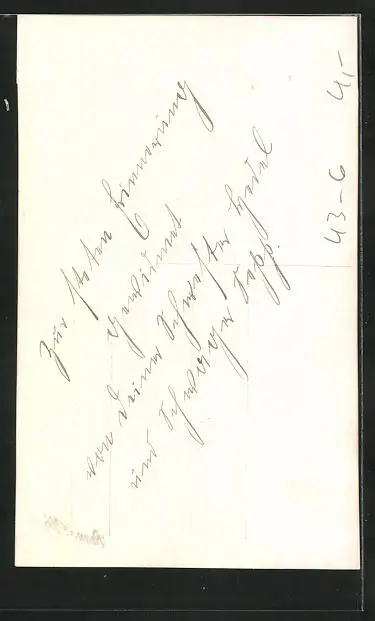 Zur steten Erinnerung
gewidmet
von Deiner Schwester Hedel
und Schwager Sepp.
43-6 4,-